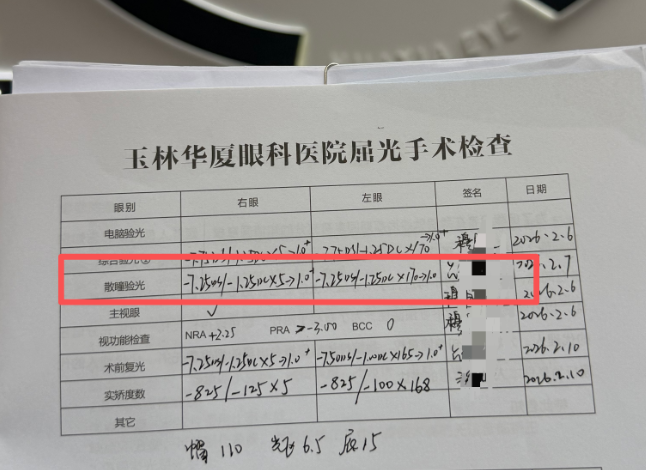 玉林华厦眼科医院屈光手术检查
眼别 右眼 左眼 签名 日期
电脑验光
综合验光② -7.75DS/-1.25DC×5→1.0⁺ -7.75DS/-1.25DC×170→1.0⁺ 2026.2.6
散瞳验光 -7.25DS/-1.25DC×5→1.0⁺ -7.25DS/-1.25DC×170→1.0 2.7
主视眼 ✓ 2026.2.6
视功能检查 NRA +2.25 PRA >-3.00 BCC 0 2026.2.6
术前复光 -7.25DS/-1.25DC×5→1.0⁺ -7.50DS/-1.00DC×165→1.0⁺ 2026.2.10
实矫度数 -825/-125×5 -825/-100×168 2026.2.10
其它
帽 110 光 6.5 底 15